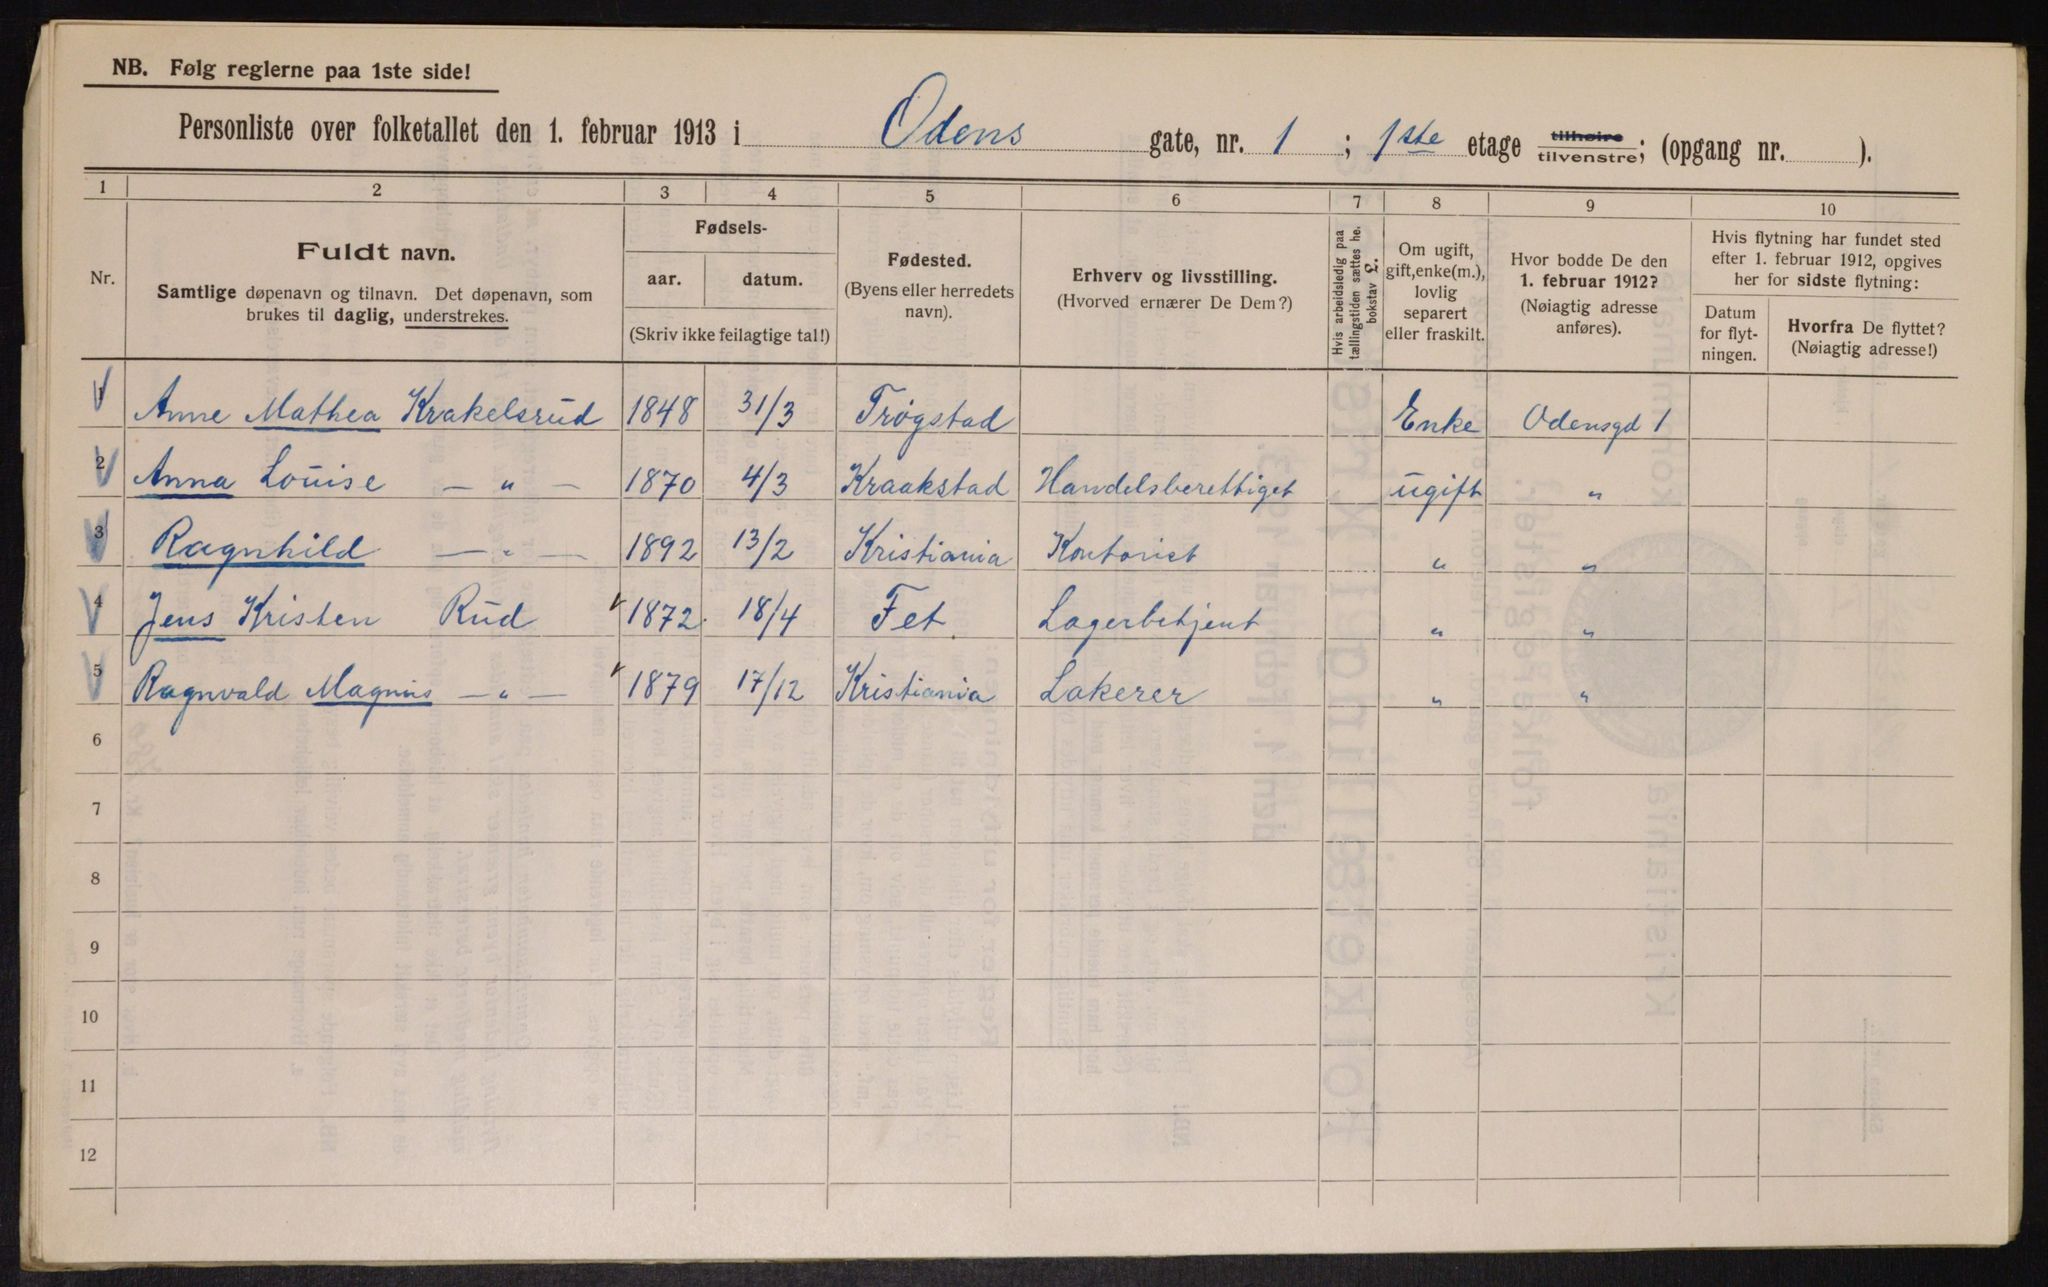 NB. Følg reglerne paa 1ste side!
Personliste over folketallet den 1. februar 1913 i Odens gate, nr. 1; 1ste etage tilhøire tilvenstre; (opgang nr. ).
1 2 3 4 5 6 7 8 9 10
Nr.
Fuldt navn.
Samtlige døpenavn og tilnavn. Det døpenavn, som
brukes til daglig, understrekes.
Fødsels-
aar. datum.
(Skriv ikke feilagtige tal!)
Fødested.
(Byens eller herredets
navn).
Erhverv og livsstilling.
(Hvorved ernærer De Dem?)
Hvis arbeidsledig paa
tællingstiden sættes he.
bokstav L.
Om ugift,
gift, enke(m.),
lovlig
separert
eller fraskilt.
Hvor bodde De den
1. februar 1912?
(Nøiagtig adresse
anføres).
Hvis flytning har fundet sted
efter 1. februar 1912, opgives
her for sidste flytning:
Datum
for flyt-
ningen.
Hvorfra De flyttet?
(Nøiagtig adresse!)
1 Anne Mathea Krakelsrud 1848 31/3 Trøgstad Enke Odensgd 1
2 Anna Louise — „ — 1870 4/3 Kraakstad Handelsberettiget ugift „
3 Ragnhild — „ — 1892 13/2 Kristiania Kontorist „ „
4 Jens Kristen Rud 1872 18/4 Fet Lagerbetjent „ „
5 Ragnvald Magnus — „ — 1879 17/12 Kristiania Lakerer „ „
6
7
8
9
10
11
12